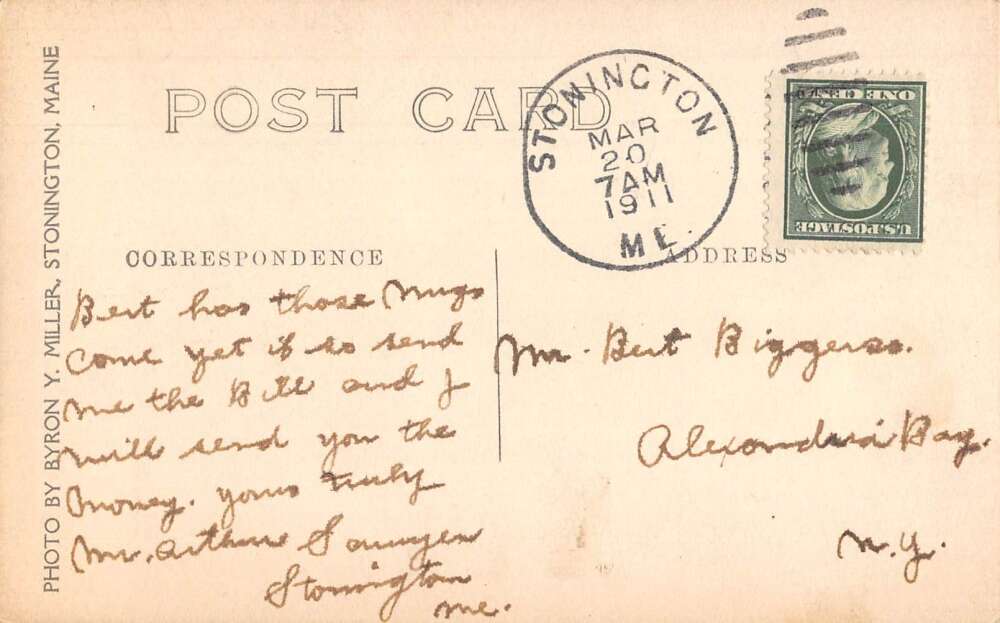 POST CARD
STONINGTON
MAR
20
7 AM
1911
ME.
ONE CENT
U.S. POSTAGE
PHOTO BY BYRON Y. MILLER, STONINGTON, MAINE
CORRESPONDENCE
Bert has those Mugs
come yet if so send
me the Bill and I
will send you the
money. yours truly
Mr. Arthur Sawyer
Stonington
Me.
ADDRESS
Mr. Bert Biggerss.
Alexandria Bay.
N.Y.